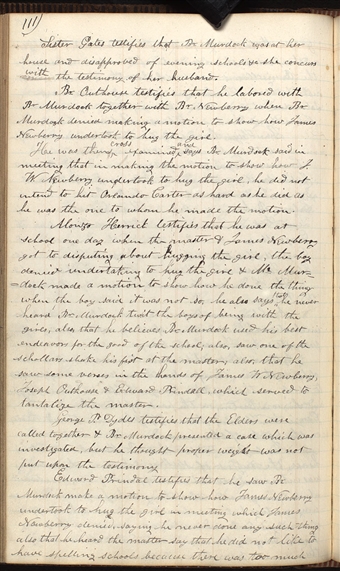 111
Sister Gates testifies that Br Murdock was at her
house and disapproved of evening schools & she concurs
with the testimony of her husband.
Br Outhouse testifies that he labored with
Br Murdock together with Br. Newberry when Br
Murdock denied making a motion to show how James
Newberry undertook to hug the girl.
He was then cross examined, and says Br Murdock said in
meeting that in making the motion to show how J
W. Newberry undertook to hug the girl, he did not
intend to hit Orlando Carter as hard as he did as
he was the one to whom he made the motion.
Alonzo Herrick testifies that he was at
school one day when the master & James Newberry
got to disputing about hugging the girl, the boy
denied undertaking to hug the girl & Mr Mur-
dock made a motion to show how he done the thing
when the boy said it was not so, he also says that he never
heard Br Murdock twit the boys of being with the
girls, also that he believes Br Murdock used his best
endeavor for the good of the school, also, saw one of the
schollars shake his fist at the master, also, that he
saw some verses in the hands of James W Newberry,
Joseph Outhouse & Edward Prindall, which served to
tantalize the master.
George P. Dykes testifies that the Elders were
called together & Br Murdock presented a case which was
investigated, but he thought proper weight was not
put upon the testimony
Edward Prindal testifies that he saw Br
Murdock make a motion to show how James Newberry
undertook to hug the girl in meeting which James
Newberry denied, saying he never done any such thing
also that he heard the master say that he did not like to
have spelling schools because there was too much